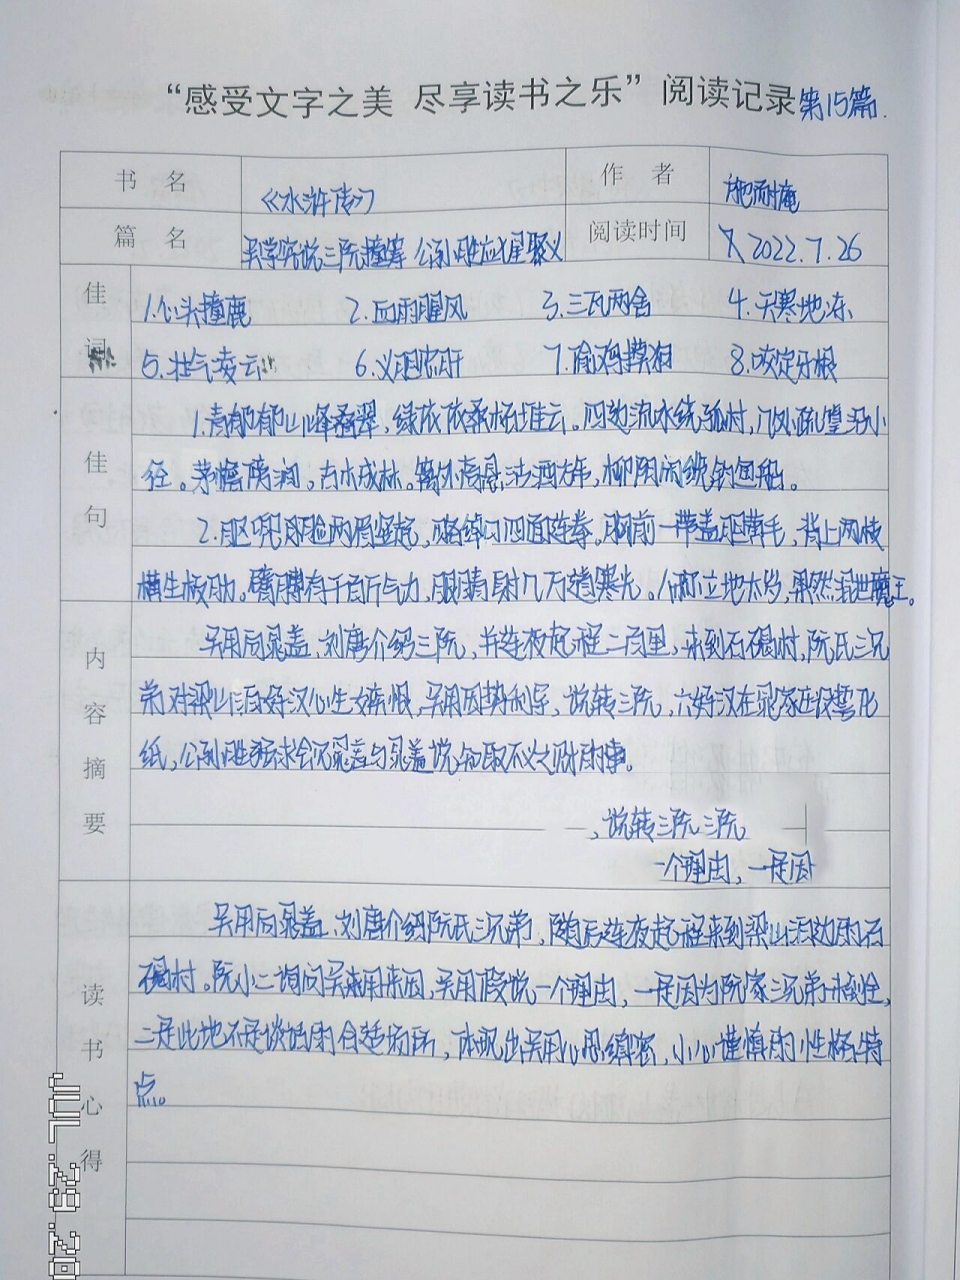 “感受文字之美 尽享读书之乐”阅读记录第15篇.
书 名 《水浒传》 作 者 施耐庵
篇 名 吴学究说三阮撞筹 公孙胜应七星聚义 阅读时间 2022.7.26
佳词 1.心头撞鹿 2.血雨腥风 3.三瓦两舍 4.天寒地冻
5.壮气凌云 6.义胆忠肝 7.偷鸡摸狗 8.咬定牙根
佳句 1.青郁郁山峰叠翠,绿依依桑柘堆云。四边流水绕孤村,几处疏篁沿小
径。茅檐傍涧,古木成林。篱外高悬沽酒旆,柳阴闲缆钓鱼船。
2.眍兜脸两眉竖起,略绰口四面连拳。胸前一带盖胆黄毛,背上两枝
横生板肋。臂膊有千百斤气力,眼睛射几万道寒光。人称立地太岁,果然混世魔王。
内容摘要 吴用向晁盖、刘唐介绍三阮,并连夜起程二百里,来到石碣村,阮氏三兄
弟对梁山泊好汉心生嫉恨,吴用因势利导,说转三阮,六好汉在晁家庄设誓化
纸,公孙胜强求会见晁盖与晁盖说知取不义之财的事。
,说转三阮三阮
一个理由,一是因
读书心得 吴用向晁盖、刘唐介绍阮氏三兄弟,随后连夜起程来到梁山泊边的石
碣村。阮小二询问吴用来因,吴用假说一个理由,一是因为阮家三兄弟未到全,
二是此地不是谈话的合适场所,体现出吴用心思缜密,小心谨慎的性格特
点。
JUL.29.202